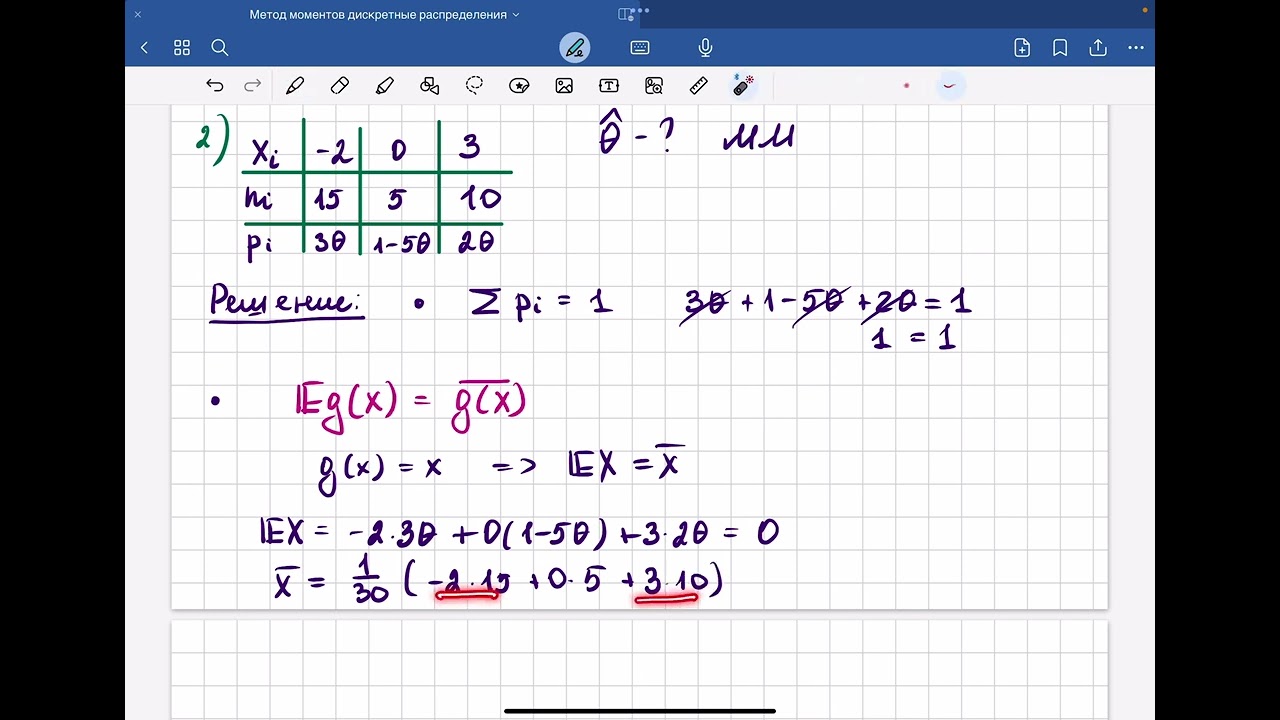 Метод моментов дискретные распределения
2) xi -2 0 3 θ̂ - ? ММ
ni 15 5 10
pi 3θ 1-5θ 2θ
Решение: • Σ pi = 1 3θ + 1 - 5θ + 2θ = 1
1 = 1
• 𝔼g(x) = \overline{g(x)}
g(x) = x => 𝔼X = x̅
𝔼X = -2·3θ + 0(1-5θ) + 3·2θ = 0
x̅ = 1/30 (-2·15 + 0·5 + 3·10)